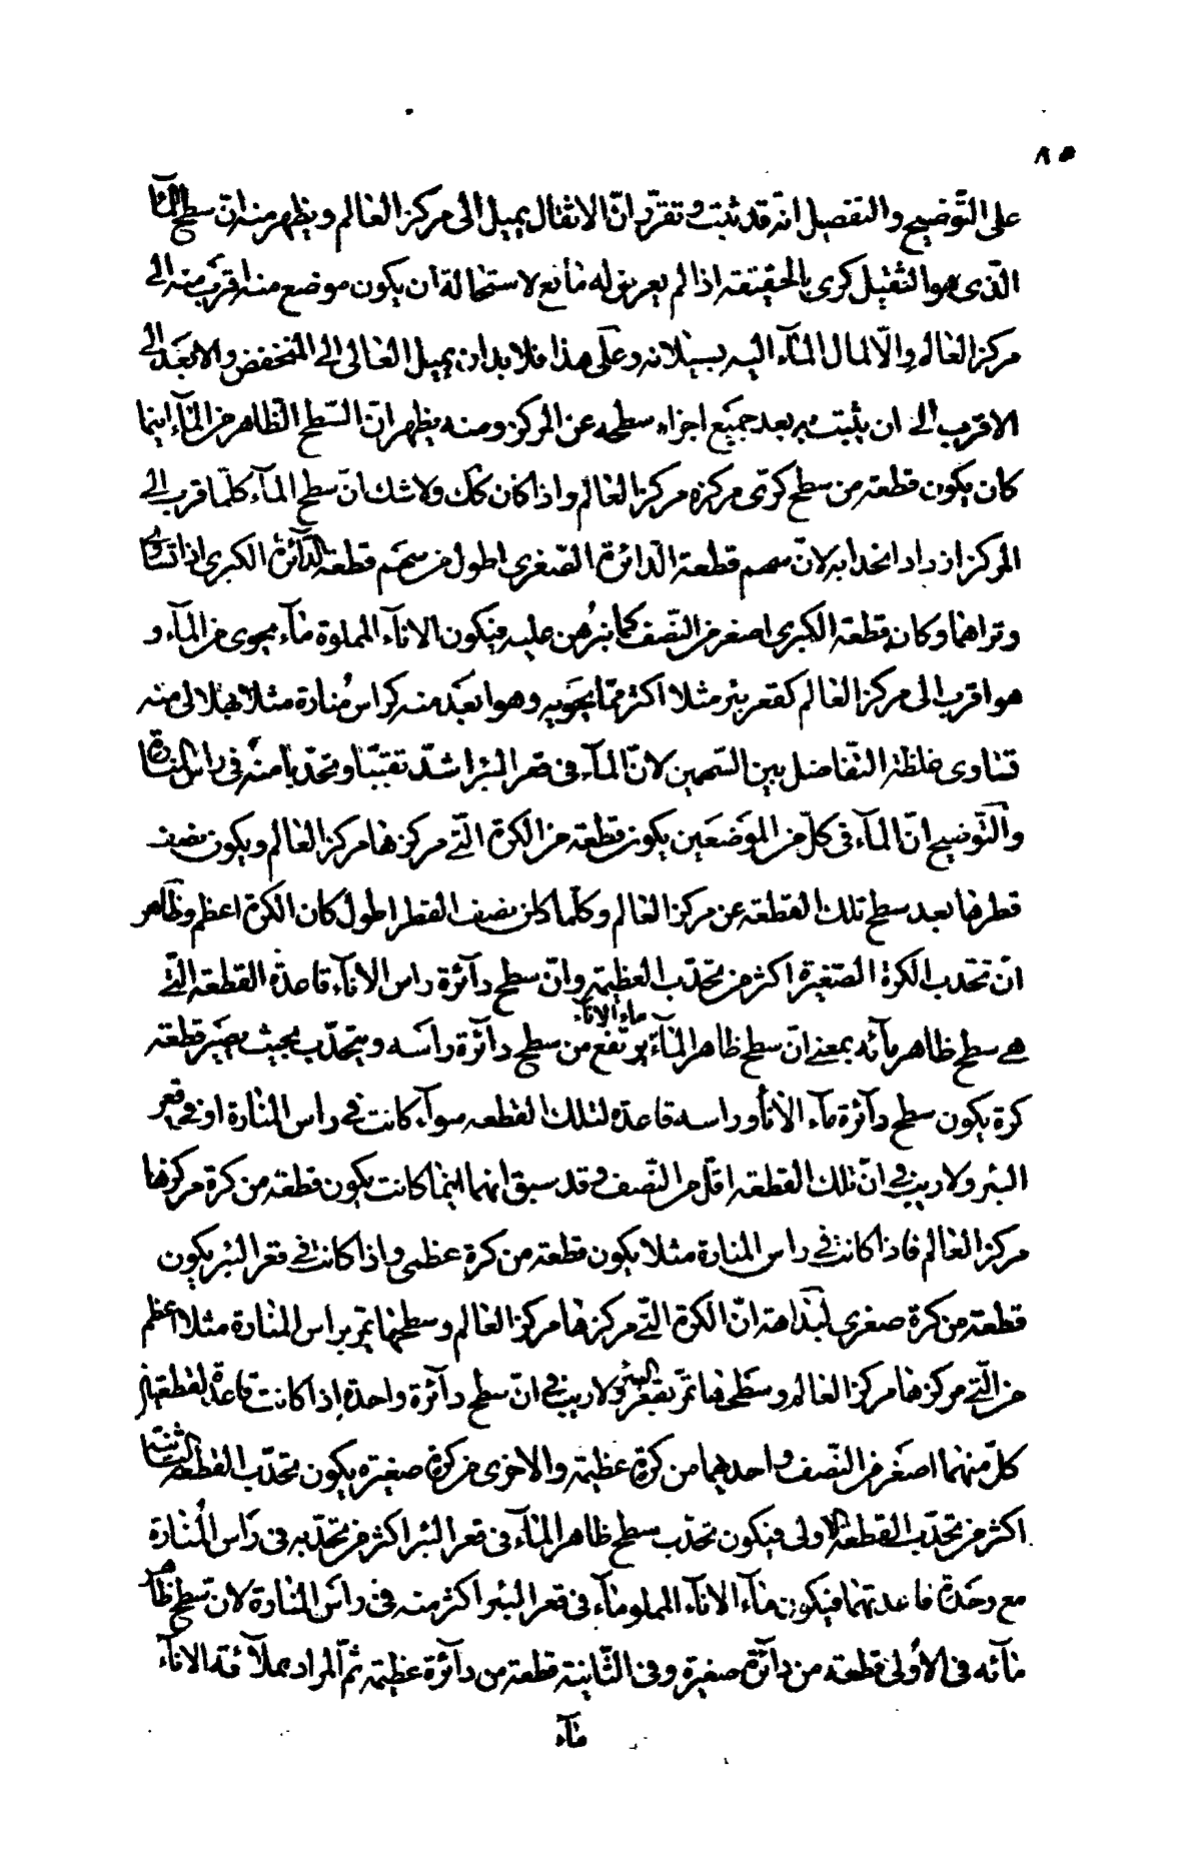 ٨٥
على التّوضيح والتفصيل انّه قد ثبت وتقرّر انّ الاثقال يميل الى مركز العالم ويظهر منه انّ سطح المآء
الّذى هو الثقيل كرى بالحقيقة اذا لم يعرض له مانع لاستحالة ان يكون موضع منه اقرب منه الى
مركز العالم والّا لمال المآء اليه بسيلانه وعلى هذا فلا بد ان يميل العالى الى المنخفض والابعد الى
الاقرب الى ان يثبت بعد جميع اجزاء سطحه عن المركز ومنه يظهر انّ السّطح الظاهر من المآء اينما
كان يكون قطعة من سطح كرىّ مركزه مركز العالم واذا كان كك ولا شك انّ سطح المآء كلّما قرب الى
المركز ازداد انحدابه لانّ سهم قطعة الدّائرة الصّغرى اطول من سهم قطعة الدّآئرة الكبرى اذا تساوى
وتراهما وكان قطعة الكبرى اصغر من النّصف كما بُرهن عليه فيكون الانآء المملوة مآء يحوى من المآء و
هو اقرب الى مركز العالم كقعر بئر مثلا اكثر ممّا يحويه وهو ابعد منه كراس مُنارة مثلا
التّفاضل بين السّهمين لانّ المآء فى قعر البئر اشدّ تقبّبا وتحدّبا منه فى راس المنارة
والتّوضيح انّ المآء فى كلّ من الموضعين يكون قطعة من الكرة الّتى مركزها مركز العالم ويكون نصف
قطرها بعد سطح تلك القطعة عن مركز العالم وكلّما كان نصف القطر اطول كان الكرة اعظم وظاهر
انّ تحدب الكرة الصّغيرة اكثر من تحدّب العظيمة وانّ سطح دآئرة راس الانآء قاعدة القطعة الّتى
هى سطح ظاهر مآئه بمعنى انّ سطح ظاهر المآء يرتفع من سطح دآئرة راسه ويتحدّب بحيث يصير قطعة
ماء الانآء
كرة يكون سطح دآئرة مآء الأنآء وراسه قاعدة لتلك القطعه سوآء كانت فى راس المنارة او فى قعر
البئر ولا ريب فى انّ تلك القطعة اقلّ من النّصف وقد سبق انهما اينما كانت يكون قطعة من كرة مركزها
مركز العالم فاذا كانت فى راس المنارة مثلا يكون قطعة من كرة عظمى واذا كانت فى قعر البئر يكون
قطعة من كرة صغرى لبداهة انّ الكرة الّتى مركزها مركز العالم وسطحها يمرّ براس المنارة مثلا اعظم
من الّتى مركزها مركز العالم وسطحها تمرّ بقعر البئر ولا ريب فى انّ سطح دآئرة واحدة اذا كانت قاعدة لقطعتين
كلّ منهما اصغر من النّصف واحديهما من كرة عظيمة والاخرى من كرة صغيرة يكون تحدّب القطعة الثانية
اكثر من تحدّب القطعة الاولى فيكون تحدّب سطح ظاهر المآء فى قعر البئر اكثر من تحدّبه فى رأس المُنارة
مع وحدة قاعدتهما فيكون مآء الانآء المملو مآء فى قعر البئر اكثر منه فى راس المنارة لان سطح ظاهر
مآئه فى الأولى قطعة من دآئرة صغيرة وفى الثّانية قطعة من دآئرة عظيمة ثمّ المراد بملآئة الانآء
مآء